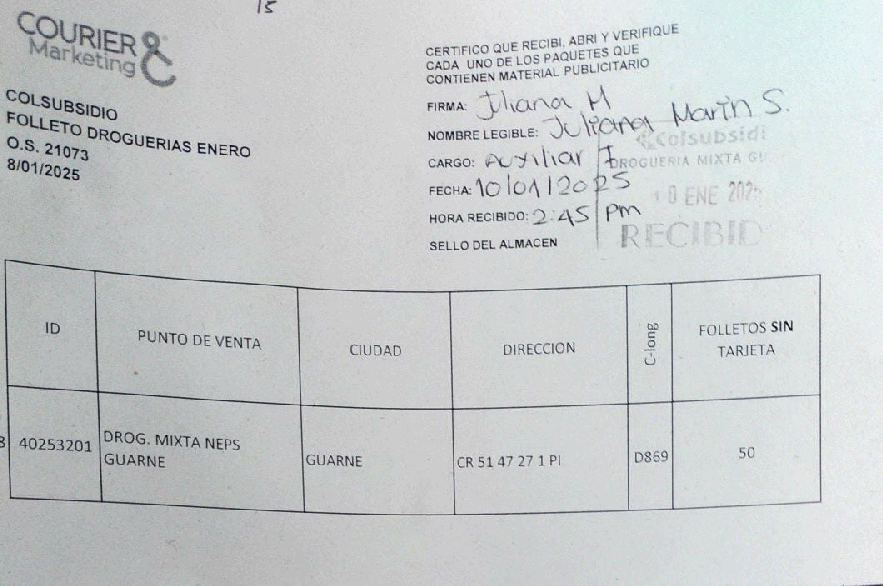 15
COURIER &
Marketing
COLSUBSIDIO
FOLLETO DROGUERIAS ENERO
O.S. 21073
8/01/2025
CERTIFICO QUE RECIBI, ABRI Y VERIFIQUE
CADA UNO DE LOS PAQUETES QUE
CONTIENEN MATERIAL PUBLICITARIO
FIRMA: Juliana M
NOMBRE LEGIBLE: Juliana Marin S.
Colsubsidi
CARGO: Auxiliar I
DROGUERIA MIXTA GU
FECHA: 10/01/2025
10 ENE 2025
HORA RECIBIDO: 2:45 pm
RECIBID
SELLO DEL ALMACEN
ID PUNTO DE VENTA CIUDAD DIRECCION C-long FOLLETOS SIN TARJETA
8 40253201 DROG. MIXTA NEPS GUARNE GUARNE CR 51 47 27 1 PI D869 50